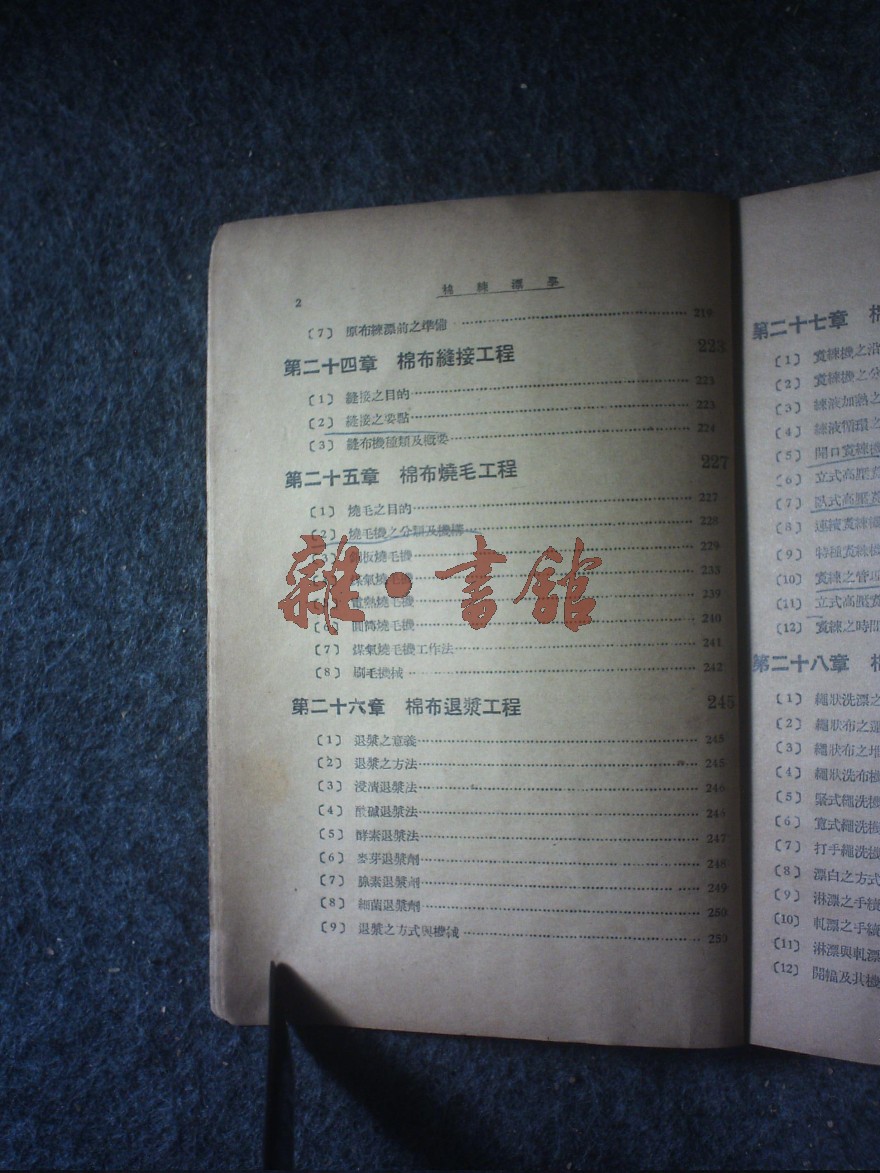 2
棉練漂學
〔7〕 原布練漂前之準備 219
第二十四章 棉布縫接工程 223
〔1〕 縫接之目的 223
〔2〕 縫接之要點 223
〔3〕 縫布機種類及概要 224
第二十五章 棉布燒毛工程 227
〔1〕 燒毛之目的 227
〔2〕 燒毛機之分類及機構 228
板燒毛機 229
煤氣燒毛機 233
電熱燒毛機 239
圓筒燒毛機 240
〔7〕 煤氣燒毛機工作法 241
〔8〕 刷毛機械 242
雜·書館
第二十六章 棉布退漿工程 245
〔1〕 退漿之意義 245
〔2〕 退漿之方法 245
〔3〕 浸漬退漿法 246
〔4〕 酸碱退漿法 246
〔5〕 酵素退漿法 247
〔6〕 麥芽退漿劑 248
〔7〕 胰素退漿劑 249
〔8〕 細菌退漿劑 250
〔9〕 退漿之方式與機械 250
第二十七章 棉
〔1〕 煑練機之沿
〔2〕 煑練機之分
〔3〕 練液加熱之
〔4〕 練液循環之
〔5〕 開口煑練機
〔6〕 立式高壓煑
〔7〕 臥式高壓煑
〔8〕 連續煑練機
〔9〕 特種煑練機
〔10〕 煑練之管理
〔11〕 立式高壓煑
〔12〕 煑練之時間
第二十八章 棉
〔1〕 繩狀洗漂之
〔2〕 繩狀布之運
〔3〕 繩狀布之堆
〔4〕 繩狀洗布機
〔5〕 緊式繩洗機
〔6〕 寬式繩洗機
〔7〕 打手繩洗機
〔8〕 漂白之方式
〔9〕 淋漂之手續
〔10〕 軋漂之手續
〔11〕 淋漂與軋漂
〔12〕 開幅及其機